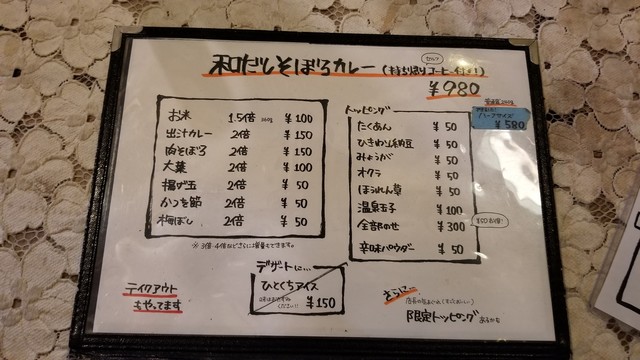 セルフ
和だしそぼろカレー(持ち帰りコーヒー付き!)
¥980
ハーフサイズ
¥580
お米 1.5倍 ¥100
出汁カレー 2倍 ¥150
肉そぼろ 2倍 ¥150
大葉 2倍 ¥100
揚げ玉 2倍 ¥50
かつを節 2倍 ¥50
梅ぼし 2倍 ¥50
※3倍・4倍などさらに増量もできます。
トッピング
たくあん ¥50
ひきわり納豆 ¥50
みょうが ¥50
オクラ ¥50
ほうれん草 ¥50
温泉玉子 ¥100
全部のせ ¥300
¥50お得!
辛味パウダー ¥50
デザートに…
ひとくちアイス
¥150
テイクアウト
もやってます
さらに…
限定トッピングあるかも